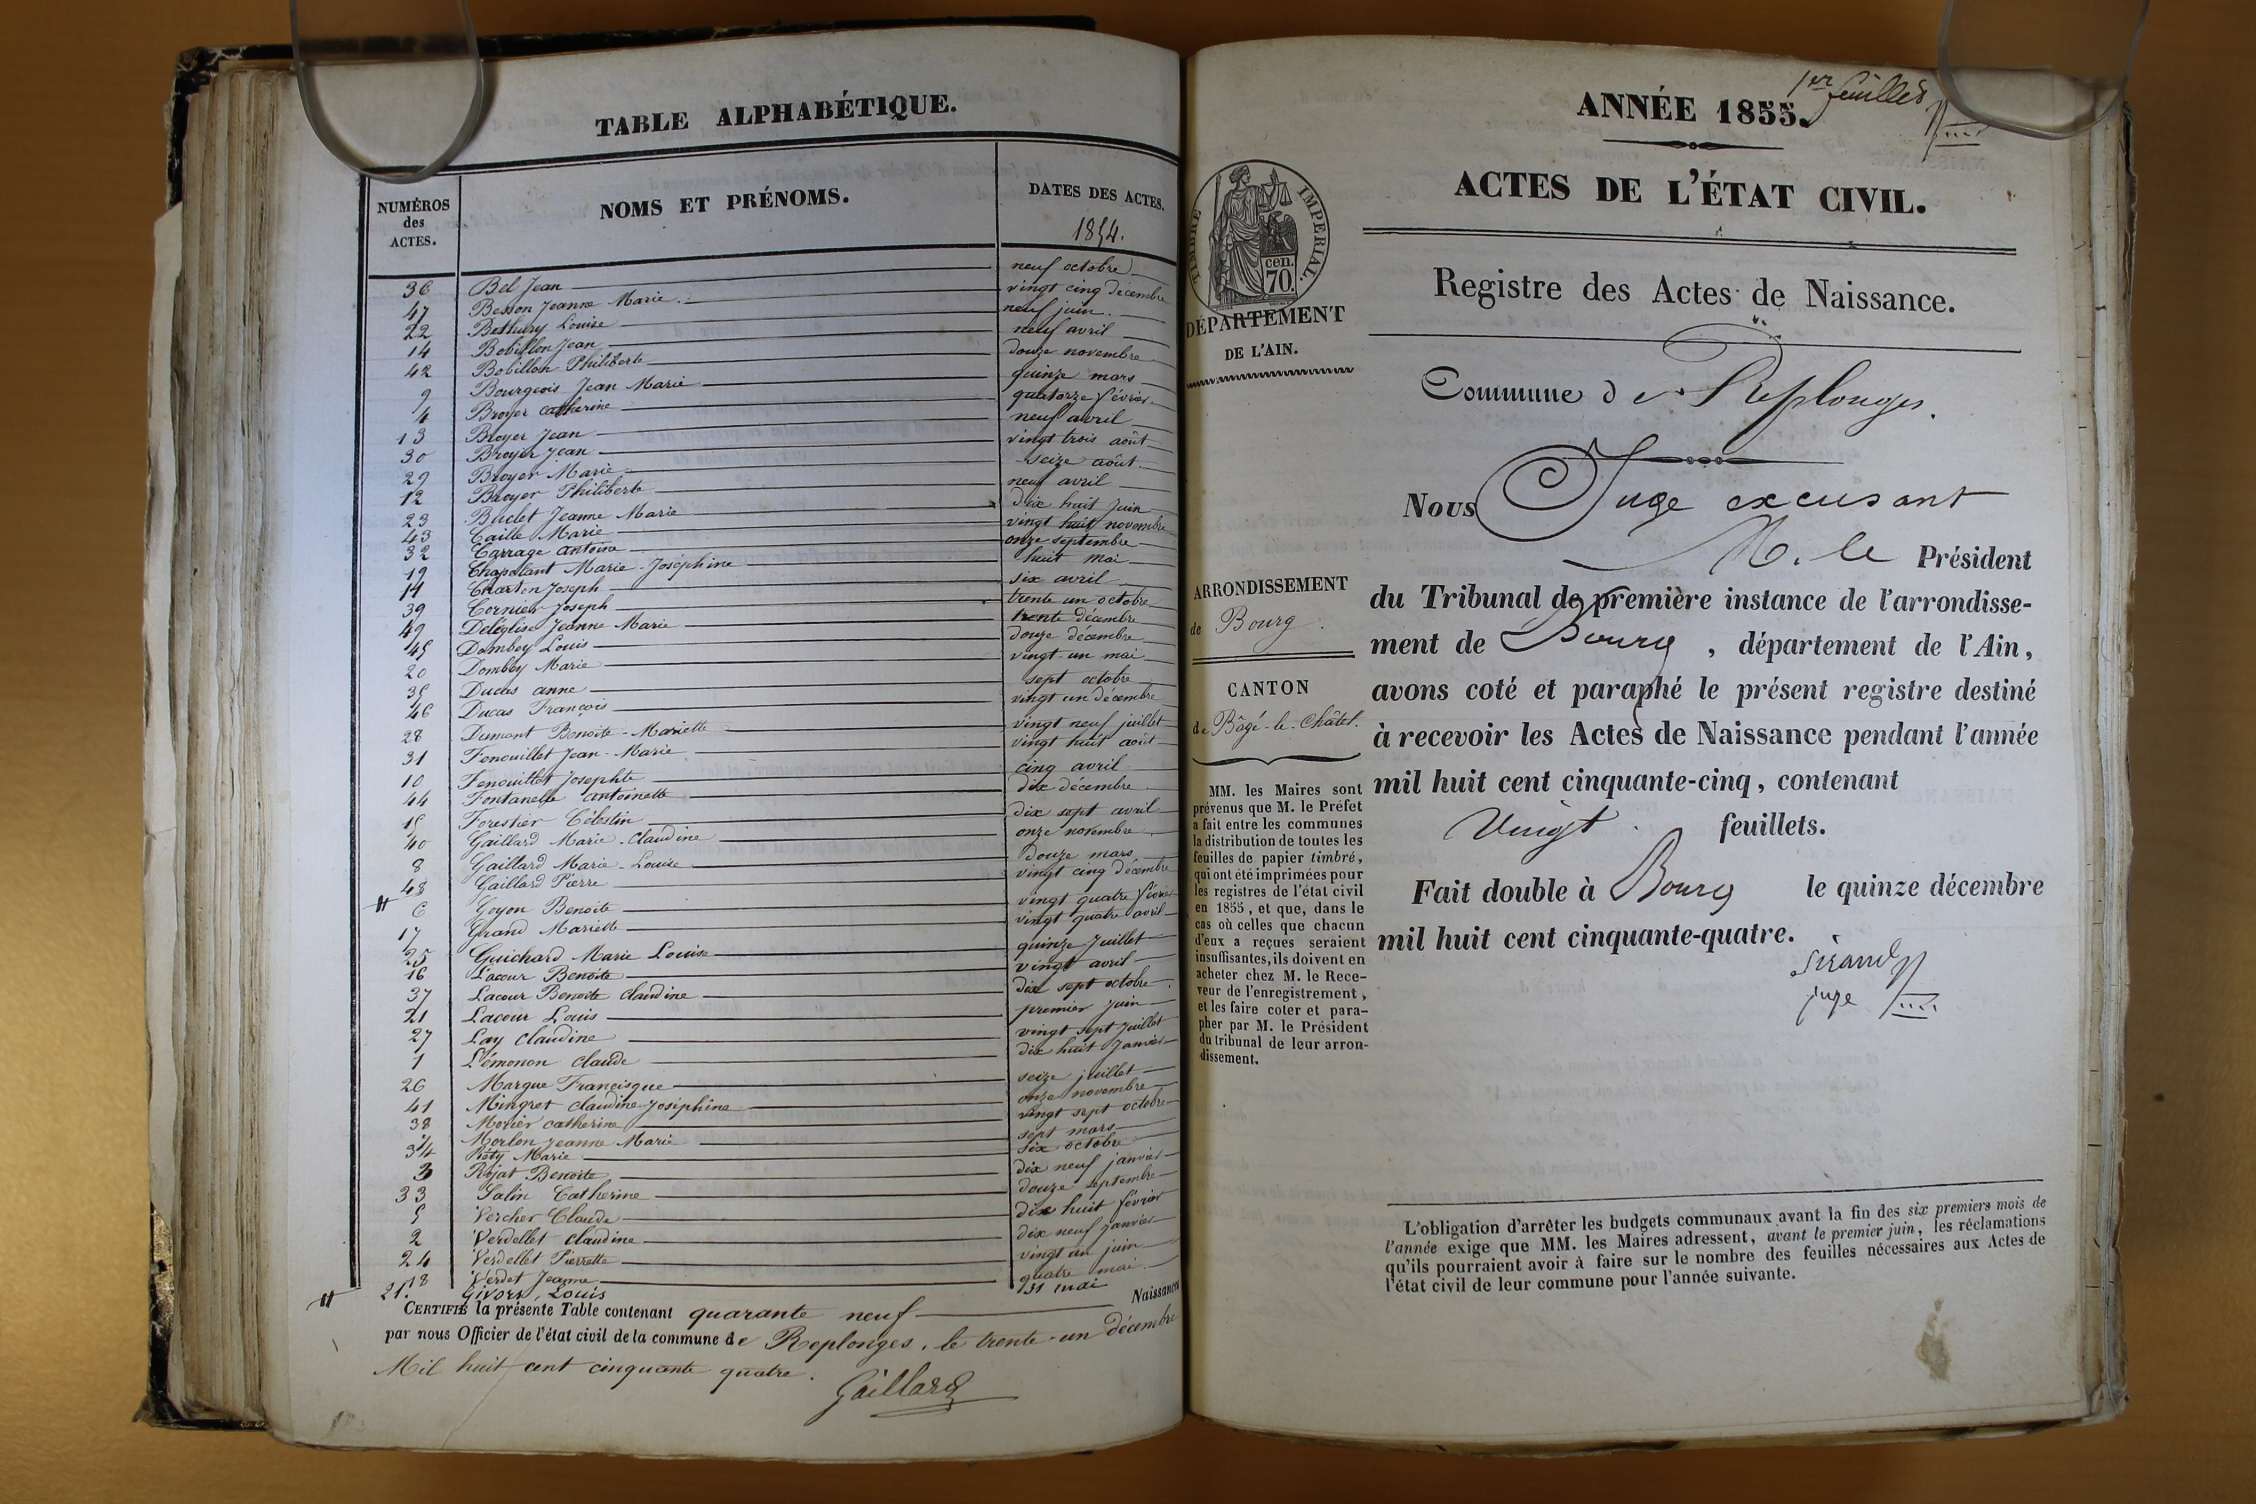 TABLE ALPHABÉTIQUE.
NUMÉROS des ACTES.
NOMS ET PRÉNOMS.
DATES DES ACTES.
1854.
36 Bel Jean neuf octobre
47 Besson Jeanne Marie vingt cinq décembre
22 Bethury Louise neuf juin
14 Bobillon Jean neuf avril
42 Bobillon Philiberte douze novembre
9 Bourgeois Jean Marie quinze mars
4 Broyer Catherine quatorze février
13 Broyer Jean neuf avril
30 Broyer Jean vingt trois août
29 Broyer Marie seize août
12 Broyer Philiberte neuf avril
23 Buclet Jeanne Marie dix huit juin
43 Caille Marie vingt huit novembre
32 Carrage antoine onze septembre
19 Chapolant Marie-Joséphine huit mai
11 Charton Joseph six avril
39 Cornier Joseph trente un octobre
49 Deléglise Jeanne Marie trente décembre
45 Dombey Louis douze décembre
20 Dombey Marie vingt-un mai
35 Ducas anne sept octobre
46 Ducas François vingt un décembre
28 Dumont Benoite-Mariette vingt neuf juillet
31 Fenouillet Jean-Marie vingt huit août
10 Fenouillet Josephte cinq avril
44 Fontanelle antoinette dix décembre
15 Forestier Célestin dix sept avril
40 Gaillard Marie-Claudine onze novembre
8 Gaillard Marie-Louise douze mars
48 Gaillard Pierre vingt cinq décembre
6 Goyon Benoite vingt quatre février
17 Grand Mariette vingt quatre avril
25 Guichard Marie Louise quinze Juillet
16 Lacour Benoite vingt avril
37 Lacour Benoite Claudine dix sept octobre
21 Lacour Louis premier juin
27 Lay Claudine vingt sept Juillet
1 Lémonon Claude dix huit Janvier
26 Margue Francisque seize juillet
41 Mingret Claudine-Joséphine onze novembre
38 Morier Catherine vingt sept octobre
7 Morlon Jeanne Marie sept mars
34 Réty Marie six octobre
3 Rojat Benoite dix neuf janvier
33 Salin Catherine douze septembre
5 Vercher Claude dix huit février
2 Verdellet Claudine dix neuf janvier
24 Verdellet Pierrette vingt un juin
18 Verdet Jeanne quatre mai
21. Givors, Louis 31 mai
CERTIFIÉ la présente Table contenant quarante neuf Naissances
par nous Officier de l'état civil de la commune de Replonges, le trente-un décembre
Mil huit cent cinquante quatre.
Gaillard
1er feuillet
ANNÉE 1855.
ACTES DE L'ÉTAT CIVIL.
TIMBRE IMPÉRIAL.
cen. 70.
Registre des Actes de Naissance.
DÉPARTEMENT
DE L'AIN.
Commune de Replonges.
Nous Juge excusant
M. le Président
du Tribunal de première instance de l'arrondisse-
ment de Bourg, département de l'Ain,
avons coté et paraphé le présent registre destiné
à recevoir les Actes de Naissance pendant l'année
mil huit cent cinquante-cinq, contenant
Vingt feuillets.
Fait double à Bourg le quinze décembre
mil huit cent cinquante-quatre.
Sirand
juge
ARRONDISSEMENT
de Bourg.
CANTON
de Bâgé-le-Châtel.
MM. les Maires sont
prévenus que M. le Préfet
a fait entre les communes
la distribution de toutes les
feuilles de papier timbré,
qui ont été imprimées pour
les registres de l'état civil
en 1855, et que, dans le
cas où celles que chacun
d'eux a reçues seraient
insuffisantes, ils doivent en
acheter chez M. le Rece-
veur de l'enregistrement,
et les faire coter et para-
pher par M. le Président
du tribunal de leur arron-
dissement.
L'obligation d'arrêter les budgets communaux avant la fin des six premiers mois de
l'année exige que MM. les Maires adressent, avant le premier juin, les réclamations
qu'ils pourraient avoir à faire sur le nombre des feuilles nécessaires aux Actes de
l'état civil de leur commune pour l'année suivante.